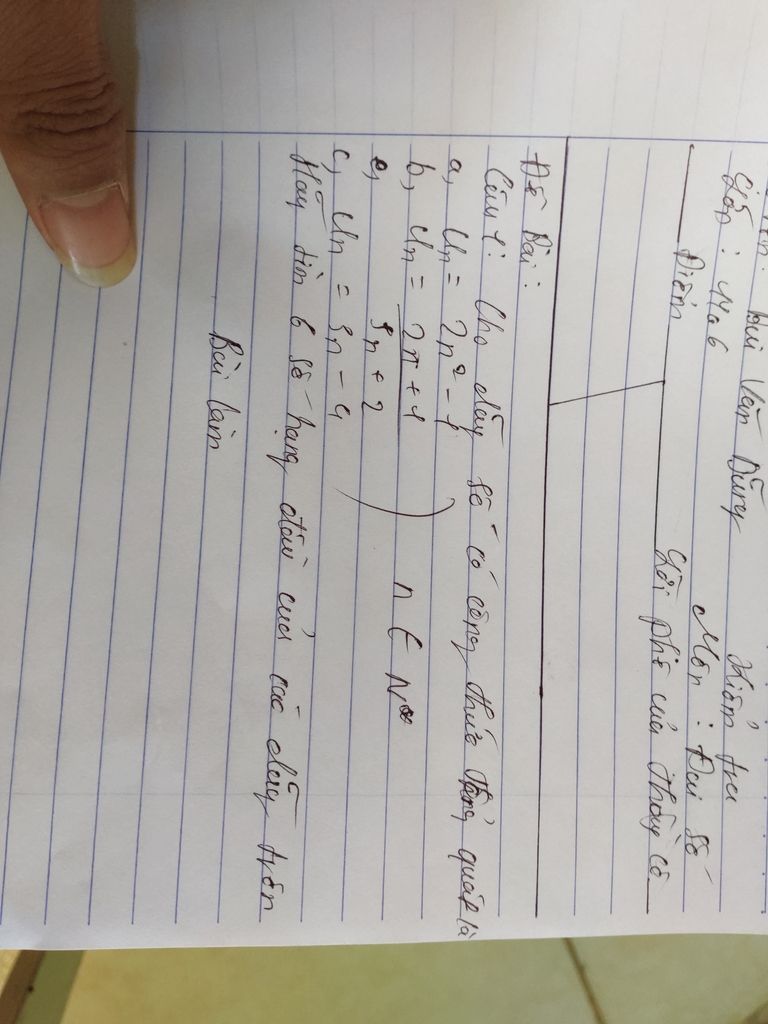 Bùi Văn Dũng Kiểm tra
Lớp: 11a6 Môn: Đại số
Điểm Lời phê của thầy cô
Đề Bài:
Câu 1: Cho dãy số có công thức tổng quát là
a, Un = 2n² - 1
b, Un = 2n + 1 / 3n + 2 n ∈ N*
c, Un = 3n - 4
Hãy tìm 6 số hạng đầu của các dãy trên
Bài làm